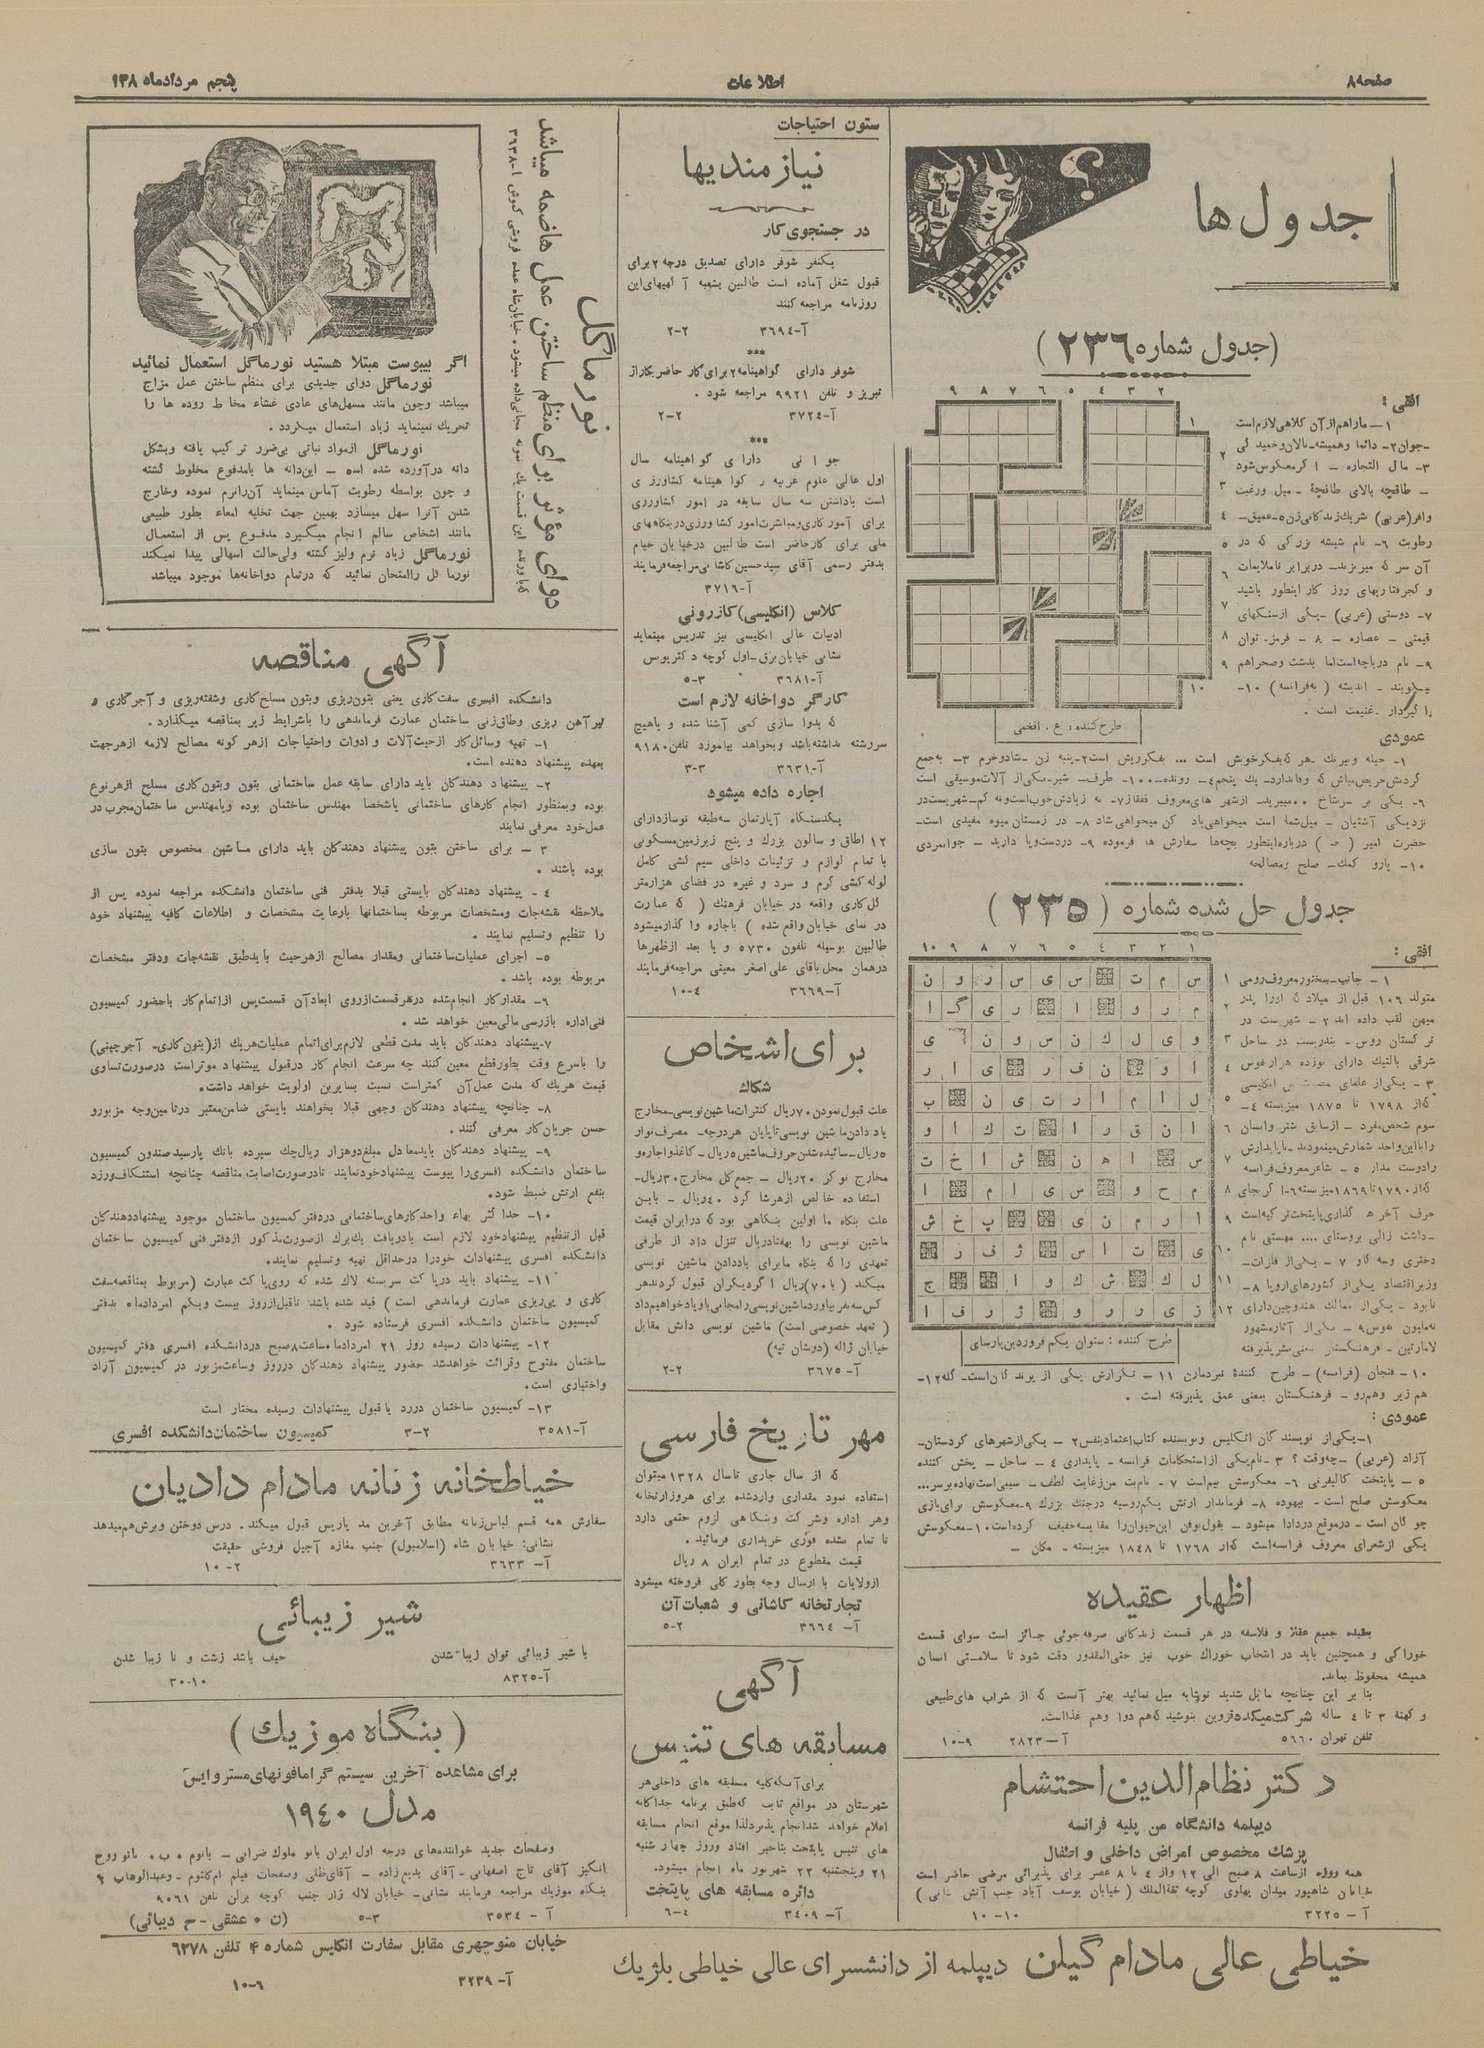 صفحه ۸
اطلاعات
پنجم مردادماه ۱۳۸
جدول ها
(جدول شماره ۲۳۶)
۲ ۳ ۴ ۵ ۶ ۷ ۸ ۹
افقی :
۱ــ مارا هم از آن کلاهی لازم است
ــ جوان ۲ــ دائما و همیشه ــ نالان و خمیده
۳ــ مال التجاره ــ اگر معکوس شود
ــ طاقچه بالای طاقچهٔ ــ میل و رغبت
وافر (عربی) شریك زندگانی زن ۵ــ عمیق ــ
رطوبت ۶ــ نام شیشه بزرگی که در
آن سرکه میریزند ــ در برابر ناملایمات
و گرفتاریهای روز کار اینطور باشید
۷ــ دوستی (عربی) ــ یکی از سنگهای
قیمتی ــ عصاره ــ ۸ ــ قرمز. توان
۹ــ نام دریاچه است اما بدشت و صحرا هم
گویند ــ اندیشه (بفرانسه) ۱۰ــ
غنیمت است .
طرح کننده : ع . افخمی
عمودی
۱ــ حیله و نیرنگ ــ هر که بفکر خویش است ... بفکر ریش است ۲ــ پنبه زن ــ شاد و خرم ۳ــ به جمع
۶ــ یکی بر سر شاخ ۰۰ میبرید ــ از شهر های معروف قفقاز ۷ــ نه زیادش خوب است و نه کم ــ شهریست در
نزدیکی آشتیان ــ میل شما است میخواهی باد کن میخواهی شاد ۸ــ در زمستان میوه مفیدی است ــ
حضرت امیر (ص) درباره اینطور بچه‌ها سفارش ها فرموده ۹ــ در دست و پا دارید ــ جوانمردی
۱۰ــ یارو کمك ــ صلح و مصالحه
جدول حل شده شماره (۲۳۵)
۱ ۲ ۳ ۴ ۵ ۶ ۷ ۸ ۹ ۱۰
افقی :
۱ــ جانب ــ سخنور معروف رومی
متولد ۱۰۶ قبل از میلاد که اورا پدر
میهن لقب داده اند ۲ــ شهریست در
ترکستان روس ــ بندریست در ساحل
شرقی بالتیك دارای نوزده هزار نفوس
۳ــ یکی از علمای انگلیسی
که از ۱۷۹۸ تا ۱۸۷۵ میزیسته ۴ــ
سوم شخص مفرد ــ
حرف آخرها گذاری پایتخت ترکیه است
وزیر اقتصاد یکی از کشورهای اروپا ۸ــ
نابود ــ یکی از ممالك هند و چین دارای
طرح کننده : ستوان یکم فروردین پارسای
۱۰ــ فنجان (فرانسه) ــ طرح کنندهٔ نبرد مارن ۱۱ــ تکرارش یکی از پرندگان است ــ گله ۱۲ــ
هم زیر و هم رو ــ فرهنگستان بمعنی عمق پذیرفته است .
عمودی :
۱ــ یکی از نویسندگان انگلیس و نویسنده کتاب اعتماد بنفس ۲ــ یکی از شهرهای کردستان ــ
آزاد (عربی) ــ چه وقت ؟ ۳ــ نام یکی از استحکامات فرانسه ــ پایداری ۴ــ ساحل ــ پخش کننده
۵ــ پایتخت کالیفرنی ۶ــ معکوسش بیم است ۷ــ نام بت من زغایت لطف ــ سیمی است نهاده بر سر ...
معکوسش صلح است ــ بیهوده ۸ــ فرماندار ارتش یکم روسیه در جنگ بزرگ ۹ــ معکوسش برای بازی
چوگان است ــ در موقع درد ادا میشود ــ بقول بوفن این حیوان را مقایسه خفیف کرده است ۱۰ــ معکوسش
یکی از شعرای معروف فرانسه است که از ۱۷۶۸ تا ۱۸۴۸ میزیسته ــ مکان ــ
اظهار عقیده
بعقیده جمیع عقلا و فلاسفه در هر قسمت زندگانی صرفه جوئی جائز است سوای قسمت
خوراکی و همچنین باید در انتخاب خوراك خوب نیز حتی‌المقدور دقت شود تا سلامتی انسان
همیشه محفوظ بماند.
بنا بر این چنانچه مایل شدید نوشابه میل نمائید بهتر آنست که از شراب های طبیعی
و کهنهٔ ۳ تا ۴ ساله شرکت میکده قزوین بنوشید که هم دوا و هم غذا است.
تلفن تهران ۵۶۶۰ آــ ۲۸۲۳ ۹ــ۱۰
دکتر نظام‌الدین احتشام
دیپلمه دانشگاه من پلیه فرانسه
پزشك مخصوص امراض داخلی و اطفال
همه روزه از ساعت ۸ صبح الی ۱۲ و از ۴ تا ۸ عصر برای پذیرائی مرضی حاضر است
خیابان شاهپور میدان پهلوی کوچه ثقةالملك (خیابان یوسف آباد جنب آتش نشانی)
آ ــ ۳۲۲۵ ۱۰ــ۱۰
ستون احتیاجات
نیازمندیها
در جستجوی کار
یکنفر شوفر دارای تصدیق درجه ۲ برای
قبول شغل آماده است طالبین بشعبه آگهیهای این
روزنامه مراجعه کنند
آــ۳۶۹۴ ۲ــ۲
***
شوفر دارای گواهینامه ۲ برای کار حاضر بکار از
تبریز و تلفن ۹۹۲۱ مراجعه شود .
آــ۳۷۲۴ ۲ــ۲
***
جوانی دارای گواهینامه سال
اول عالی علوم عربیه و گواهینامه کشاورزی
است باداشتن سه سال سابقه در امور کشاورزی
برای آموزگاری و مباشرت امور کشاورزی در بنگاههای
ملی برای کار حاضر است طالبین در خیابان خیام
بدفتر رسمی آقای سید حسین کاشانی مراجعه فرمایند
آــ۳۷۱۶
کلاس (انگلیسی) کازرونی
ادبیات عالی انگلیسی نیز تدریس مینماید
نشانی خیابان برق ــ اول کوچه دکتر بوس
آــ۳۶۸۱ ۳ــ۵
کارگر دواخانه لازم است
که بدوا سازی کمی آشنا شده و یا هیچ
سررشته نداشته باشد و بخواهد بیاموزد تلفن ۹۱۸۰
آــ۳۶۳۱ ۳ــ۳
اجاره داده میشود
یکدستگاه آپارتمان سه طبقه نوساز دارای
۱۲ اطاق و سالون بزرگ و پنج زیر زمین مسکونی
با تمام لوازم و تزئینات داخلی سیم کشی کامل
لوله کشی گرم و سرد و غیره در فضای هزار متر
گل کاری واقعه در خیابان فرهنك (که عمارت
در نمای خیابان واقع شده) باجاره واگذار میشود
طالبین بوسیله تلفون ۵۷۳۰ و یا بعد از ظهرها
در همان محل بآقای علی اصغر معینی مراجعه فرمایند
آــ۳۶۶۹ ۴ــ۱۰
برای اشخاص
شکاك
علت قبول نمودن ۷۰ ریال کنترات ماشین نویسی ــ مخارج
یاد دادن ماشین نویسی تا پایان هر درجه ــ مصرف نوار
۵ ریال ــ سائیده شدن حروف ماشین ۵ ریال ــ کاغذ و اجاره و
مخارج نوکر ۲۰ ریال ــ جمع کل مخارج ۳۰ ریال ــ
استفاده خالص از هر شاگرد ۴۰ ریال ــ باین
علت بنگاه ما اولین بنگاهی بود که در ایران قیمت
ماشین نویسی را بهفتاد ریال تنزل داد از طرفی
تعهدی را که بنگاه ما برای یاددادن ماشین نویسی
میکند (با ۷۰) ریال اگر دیگران قبول کردند هر
کس سه نفر بیاورد ماشین نویسی را مجانی باو یاد خواهیم داد
(تعهد خصوصی است) ماشین نویسی دانش مقابل
خیابان ژاله (دوشان تپه)
آ ــ ۳۶۷۵ ۲ــ۲
مهر تاریخ فارسی
که از سال جاری تا سال ۱۳۲۸ میتوان
استفاده نمود مقداری وارد شده برای هر وزارتخانه
و هر اداره و شرکت و بنگاهی لزوم حتمی دارد
تا تمام نشده فوری خریداری فرمائید .
قیمت مقطوع در تمام ایران ۸ ریال
از ولایات با ارسال وجه بطور کلی فروخته میشود
تجارتخانه کاشانی و شعبات آن
آــ ۳۶۶۴ ۲ــ۵
آگهی
مسابقه های تنیس
برای آنکه کلیه مسابقه های داخلی هر
شهرستان در مواقع که طبق برنامه جداگانه
اعلام خواهد شد انجام پذیرد لذا موقع انجام مسابقه
های تنیس پایتخت بتاخیر افتاد و روز چهار شنبه
۲۱ و پنجشنبه ۲۲ شهریور ماه انجام میشود.
دائره مسابقه های پایتخت
آــ ۳۴۰۹ ۴ــ۶
نورماگل
دوای مؤثر برای منظم ساختن عمل هاضمه میباشد
با ورقه این قسمت یك نمونه مجانی داده میشود . خیابان شاه عمده فروشی کیوش ۱ــ۳۶۳۸
اگر بیبوست مبتلا هستید نورماگل استعمال نمائید
نورماگل دوای جدیدی برای منظم ساختن عمل مزاج
میباشد و چون مانند مسهل‌های عادی غشاء مخاط روده ها را
تحریك نمینماید زیاد استعمال میگردد .
نورماگل از مواد نباتی بی‌ضرر ترکیب یافته و بشکل
دانه در آورده شده است ــ این دانه ها با مدفوع مخلوط گشته
و چون بواسطه رطوبت آماس مینماید آن را نرم نموده و خارج
شدن آنرا سهل میسازد بهمین جهت تخلیه امعاء بطور طبیعی
مانند اشخاص سالم انجام میگیرد مدفوع پس از استعمال
نورماگل زیاد نرم و لیز گشته ولی حالت اسهالی پیدا نمیکند
نورماگل را امتحان نمائید که در تمام دواخانه‌ها موجود میباشد
آگهی مناقصه
دانشکده افسری سفت کاری یعنی بتون ریزی و بتون مسلح کاری و شفته ریزی و آجر کاری و
تیر آهن ریزی و طاق زنی ساختمان عمارت فرماندهی را باشرایط زیر بمناقصه میگذارد.
۱ــ تهیه وسائل کار از حیث آلات و ادوات و احتیاجات از هر گونه مصالح لازمه از هر جهت
بعهده پیشنهاد دهنده است.
۲ــ پیشنهاد دهندگان باید دارای سابقه عمل ساختمانی بتون و بتون کاری مسلح از هر نوع
بوده و بمنظور انجام کارهای ساختمانی یا شخصا مهندس ساختمان بوده و یا مهندس ساختمان مجرب در
عمل خود معرفی نمایند
۳ ــ برای ساختن بتون پیشنهاد دهندگان باید دارای ماشین مخصوص بتون سازی
بوده باشند .
۴ ــ پیشنهاد دهندگان بایستی قبلا بدفتر فنی ساختمان دانشکده مراجعه نموده پس از
ملاحظه نقشه‌جات و مشخصات مربوطه بساختمانها بارعایت مشخصات و اطلاعات کافیه پیشنهاد خود
را تنظیم و تسلیم نمایند .
۵ــ اجرای عملیات ساختمانی و مقدار مصالح از هر حیث باید طبق نقشه‌جات و دفتر مشخصات
مربوطه بوده باشد .
۶ــ مقدار کار انجام شده در هر قسمت از روی ابعاد آن قسمت پس از اتمام کار با حضور کمیسیون
فنی اداره بازرسی مالی معین خواهد شد .
۷ــ پیشنهاد دهندگان باید مدت قطعی لازم برای اتمام عملیات هر یك از (بتون کاری ــ آجر چینی)
را باسرع وقت بطور قطع معین کنند چه سرعت انجام کار در قبول پیشنهاد موثر است در صورت تساوی
قیمت هر یك که مدت عمل آن کمتر است نسبت بسایرین اولویت خواهد داشت.
۸ــ چنانچه پیشنهاد دهندگان وجهی قبلا بخواهند بایستی ضامن معتبر در تامین وجه مزبور و
حسن جریان کار معرفی کنند .
۹ــ پیشنهاد دهندگان باید معادل مبلغ دو هزار ریال چك سپرده بانك یا رسید صندون کمیسیون
ساختمان دانشکده افسری را پیوست پیشنهاد خود نمایند تا در صورت اصابت مناقصه چنانچه استنکاف ورزد
بنفع ارتش ضبط شود.
۱۰ــ حداکثر بهاء واحد کارهای ساختمانی در دفتر کمسیون ساختمان موجود پیشنهاد دهندگان
قبل از تنظیم پیشنهاد خود لازم است بادریافت یك برگ از صورت مذکور از دفتر فنی کمیسیون ساختمان
دانشکده افسری پیشنهادات خودرا در حداقل تهیه و تسلیم نمایند.
۱۱ــ پیشنهاد باید در پاکت سربسته لاك شده که روی پاکت عبارت (مربوط بمناقصه سفت
کاری و پی ریزی عمارت فرماندهی است) قید شده باشد تا قبل از روز بیست و یکم امرداد ماه بدفتر
کمیسیون ساختمان دانشکده افسری فرستاده شود .
۱۲ــ پیشنهادات رسیده روز ۲۱ امرداد ماه ساعت ۸ صبح در دانشکده افسری دفتر کمیسیون
ساختمان مفتوح و قرائت خواهد شد حضور پیشنهاد دهندگان در روز و ساعت مزبور در کمیسیون آزاد
و اختیاری است.
۱۳ــ کمیسیون ساختمان در رد یا قبول پیشنهادات رسیده مختار است
آــ۳۵۸۱ ۲ــ۳ کمیسیون ساختمان دانشکده افسری
خیاطخانه زنانه مادام دادیان
سفارش همه قسم لباس زنانه مطابق آخرین مد پاریس قبول میکند . درس دوختن و برش هم میدهد
نشانی: خیابان شاه (اسلامبول) جنب مغازه آجیل فروشی حقیقت
آــ ۳۶۳۳ ۲ــ۱۰
شیر زیبائی
با شیر زیبائی توان زیبا شدن حیف باشد زشت و نا زیبا شدن
آــ۸۳۲۵ ۱۰ــ۳۰
(بنگاه موزیك)
برای مشاهده آخرین سیستم گرامافونهای مستر وایس
مدل ۱۹۴۰
و صفحات جدید خواننده‌های درجه اول ایران بانو ملوك ضرابی ــ بانو م ۰ ب ۰ بانو روح
انگیز آقای تاج اصفهانی ــ آقای بدیع زاده ــ آقای ظلی و صفحات فیلم ام کلثوم ــ و عبدالوهاب به
بنگاه موزیك مراجعه فرمایند نشانی ــ خیابان لاله زار جنب کوچه برلن تلفن ۹۰۶۱
آ ــ ۳۵۳۴ ۳ــ۵ (ن ۰ عشقی ــ م دیبائی)
خیاطی عالی مادام گیلن دیپلمه از دانشسرای عالی خیاطی بلژیك
خیابان منوچهری مقابل سفارت انگلیس شماره ۴ تلفن ۶۲۷۸
آــ ۳۲۳۹ ۶ــ۱۰